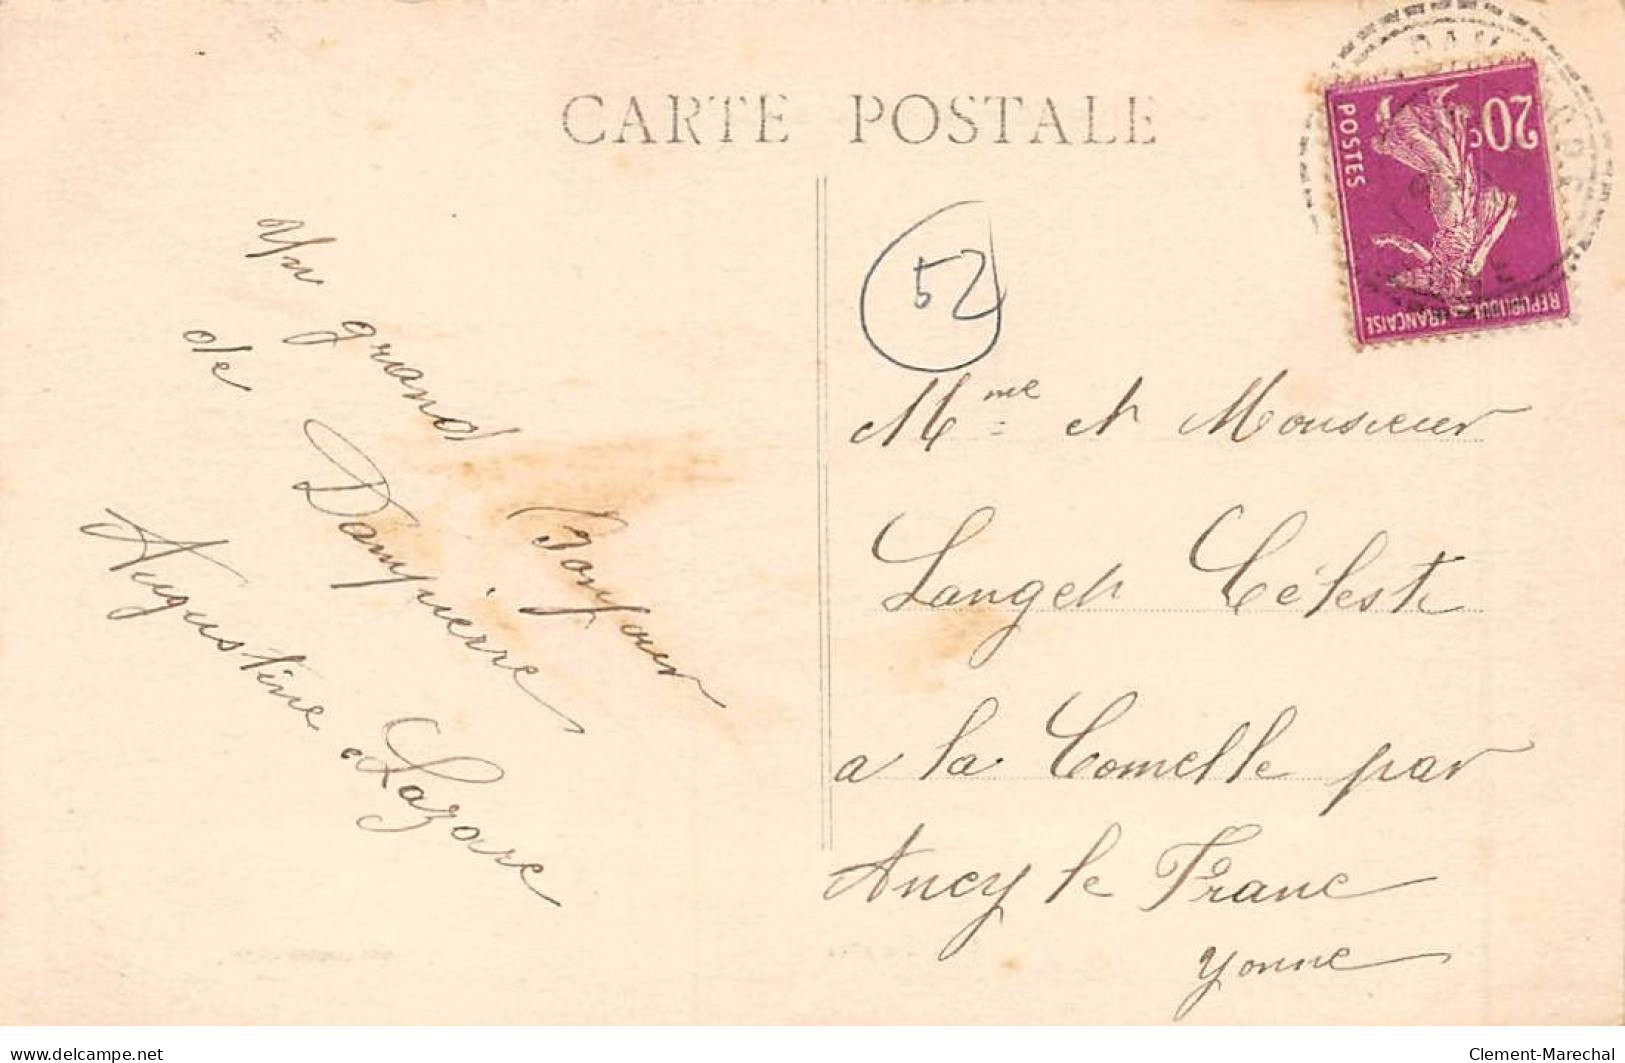 CARTE POSTALE
20c
POSTES
REPUBLIQUE FRANÇAISE
52
Un grand Bonjour
de Dampierre
Augustine et Lazare
Mme et Monsieur
Langet Céleste
a la Comelle par
Ancy le Franc
Yonne
delcampe.net
Clement-Marechal